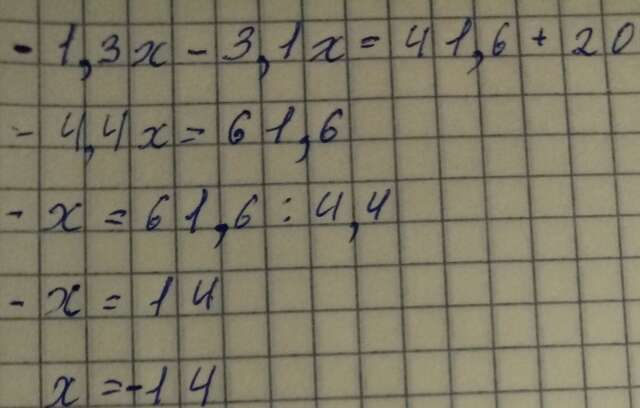 - 1,3x - 3,1x = 41,6 + 20
- 4,4x = 61,6
- x = 61,6 : 4,4
- x = 14
x = -14